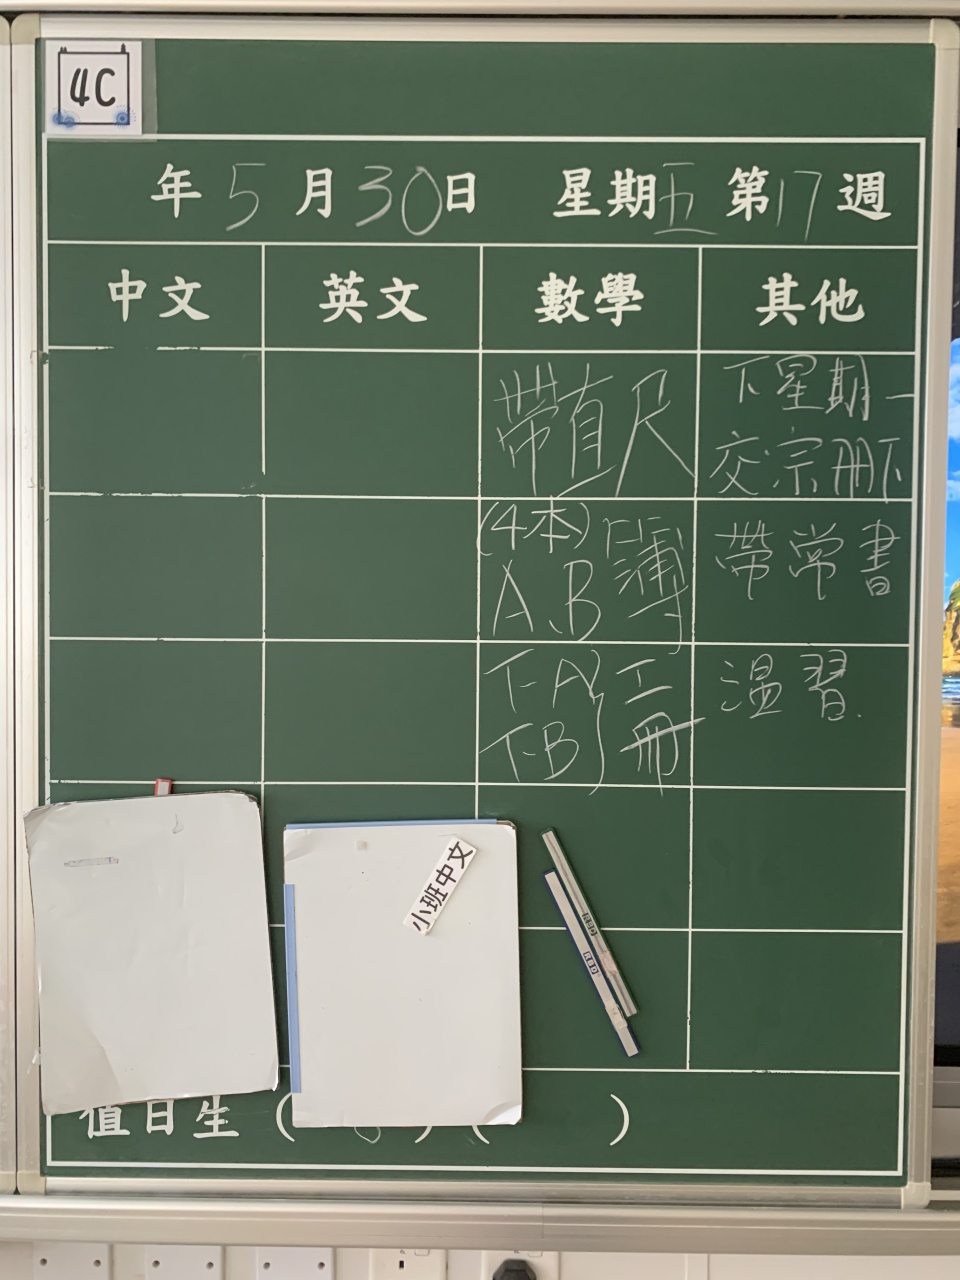 4C
年 5 月 30 日 星期五 第 17 週
中文 英文 數學 其他
帶直尺
下星期一
交宗冊下
(4本)
A、B 簿
帶常書
下A
下B
工
冊
溫習.
小班中文
值日生 ( ) ( )